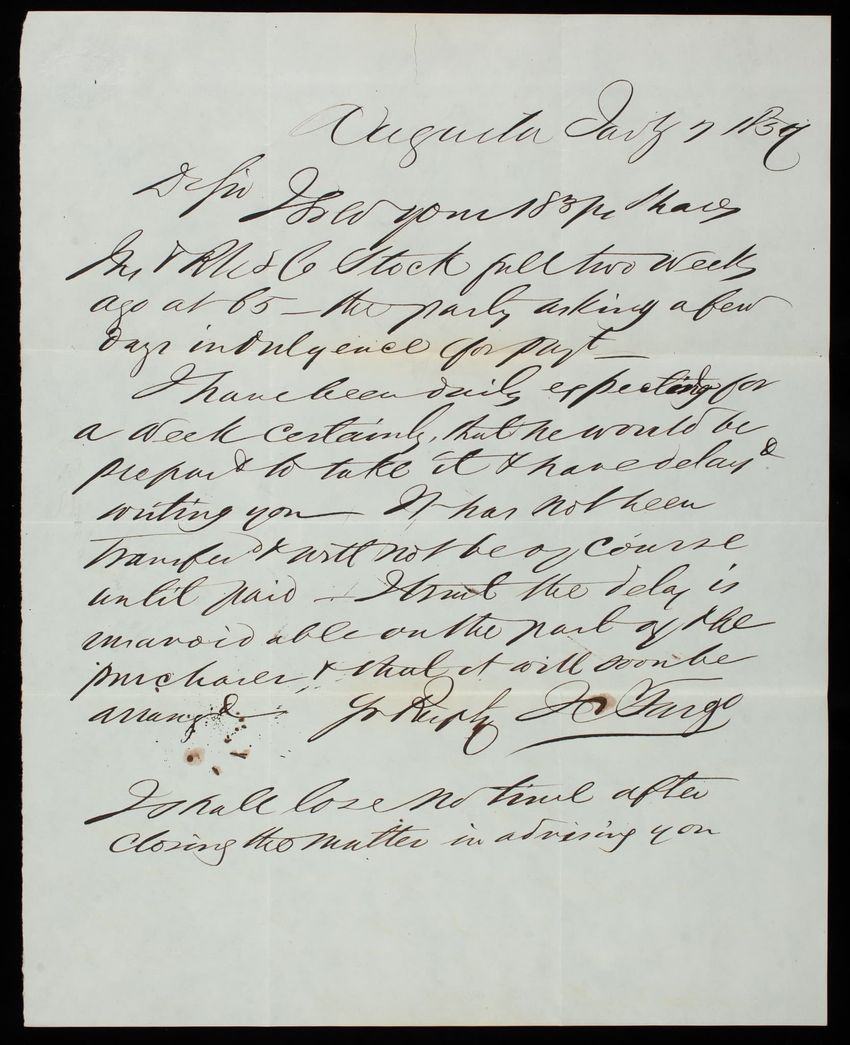 Augusta Jany 7 1857
Dr Sir I sold your 183 shares
& Co Stock full two weeks
ago at 65 — the party asking a few
days indulgence for payt —
I have been daily expecting for
a week certainly, that he would be
prepard to take it & have delayd
writing you — It has not been
Transferd & will not be of course
until paid — I trust the delay is
unavoidable on the part of the
purchaser, & that it will soon be
arrangd — Yr Resply
I shall lose no time after
closing the matter in advising you